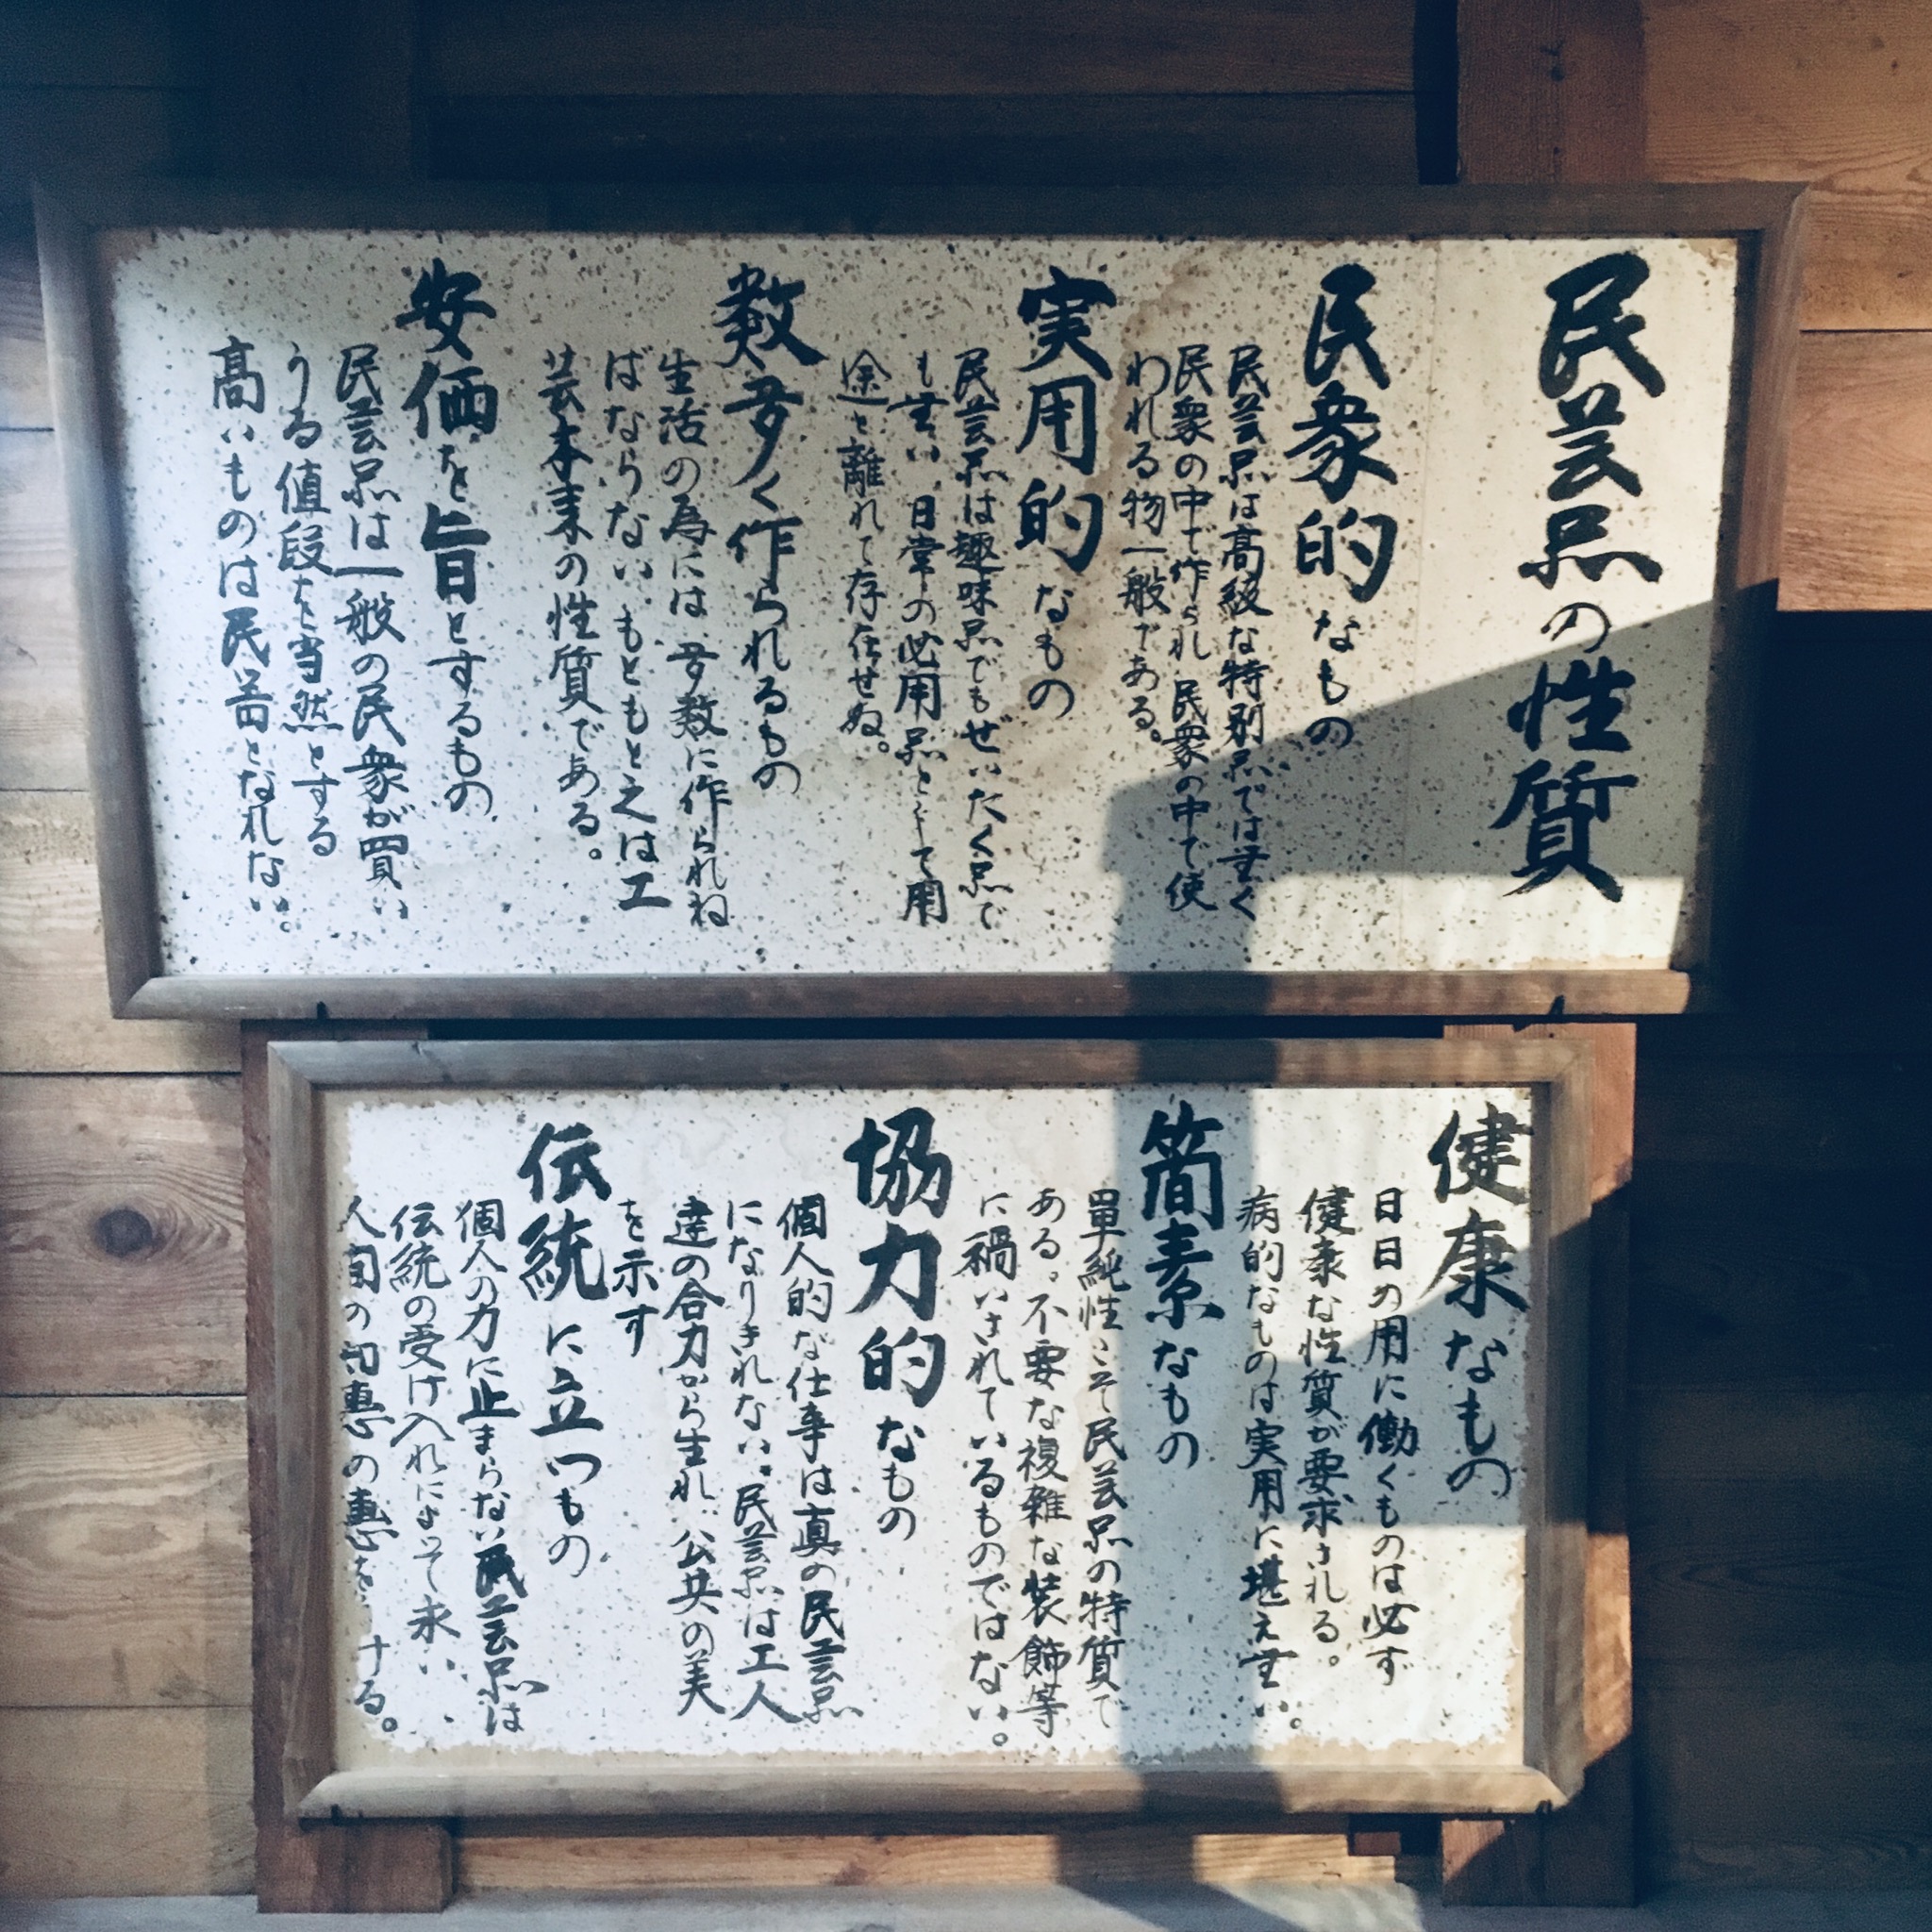 民芸品の性質
民衆的なもの
民芸品は高級な特別品では无く
民衆の中で作られ 民衆の中で使
われる物一般である。
実用的なもの
民芸品は趣味品でもぜいたく品で
も无い、日常の必用品として用
途を離れて存在せぬ。
数多く作られるもの
生活の為には多数に作られね
ばならない、もともと之は工
芸本来の性質である。
安価を旨とするもの
民芸品は一般の民衆が買い
うる値段を当然とする
高いものは民芸となれない。
健康なもの
日日の用に働くものは必ず
健康な性質が要求される。
病的なものは実用に堪え无い。
簡素なもの
單純性こそ民芸品の特質で
ある。不要な複雑な装飾等
に禍いされているものではない。
協力的なもの
個人的な仕事は真の民芸品
になりきれない、民芸品は工人
達の合力から生れ、公共の美
を示す
伝統に立つもの
個人の力に止まらない民芸品は
伝統の受け入れによって永い
人間の知恵の恵を ける。